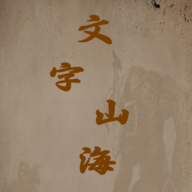 文字山海